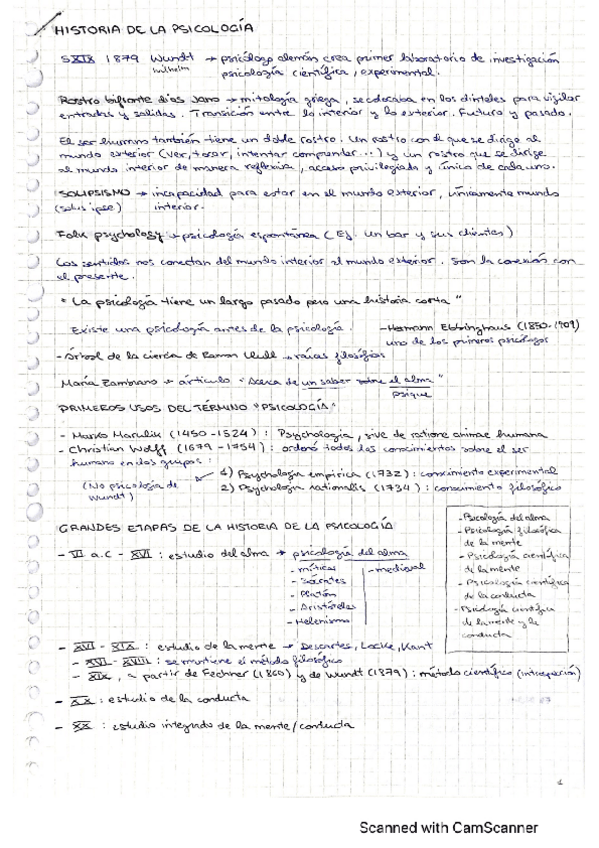 HISTORIA DE LA PSICOLOGÍA
SXIX 1879 Wundt → psicólogo alemán crea primer laboratorio de investigación
Wilhelm psicología científica, experimental.
Rostro bifronte dios Jano → mitología griega, se colocaba en los dinteles para vigilar
entradas y salidas. Transición entre lo interior y lo exterior. Futuro y pasado.
El ser humano también tiene un doble rostro. Un rostro con el que se dirige al
mundo exterior (ver, tocar, intentar comprender...) y un rostro que se dirige
al mundo interior de manera reflexiva, acceso privilegiado y único de cada uno.
SOLIPSISMO → incapacidad para estar en el mundo exterior, únicamente mundo
(solus ipse) interior.
Folk psychology → psicología espontánea (Ej. un bar y sus clientes)
Los sentidos nos conectan del mundo interior al mundo exterior. Son la conexión con
el presente.
"La psicología tiene un largo pasado pero una historia corta"
Existe una psicología antes de la psicología. - Hermann Ebbinghaus (1850-1909)
uno de los primeros psicólogos
- Árbol de la ciencia de Ramon Llull → raíces filosóficas
María Zambrano → artículo "Acerca de un saber sobre el alma"
psique
PRIMEROS USOS DEL TÉRMINO "PSICOLOGÍA"
- Marko Marulik (1450-1524): Psychologia, sive de ratione animae humana
- Christian Wolff (1679-1754): ordenó todos los conocimientos sobre el ser
humano en dos grupos:
1) Psychologia empirica (1732): conocimiento experimental
(No psicología de Wundt)
2) Psychologia rationalis (1734): conocimiento filosófico
GRANDES ETAPAS DE LA HISTORIA DE LA PSICOLOGÍA
- VI a.C - XVI: estudio del alma → psicología del alma
- míticas - medieval
- Sócrates
- Platón
- Aristóteles
- Helenismo
- Psicología del alma
- Psicología filosófica
de la mente
- Psicología científica
de la mente
- Psicología científica
de la conducta
- Psicología científica
de la mente y la
conducta
- XVI - XIX: estudio de la mente → Descartes, Locke, Kant
- XVI - XVIII: se mantiene el método filosófico
- XIX, a partir de Fechner (1860) y de Wundt (1879): método científico (introspección)
- XX: estudio de la conducta
- XX: estudio integrado de la mente/conducta
1
Scanned with CamScanner